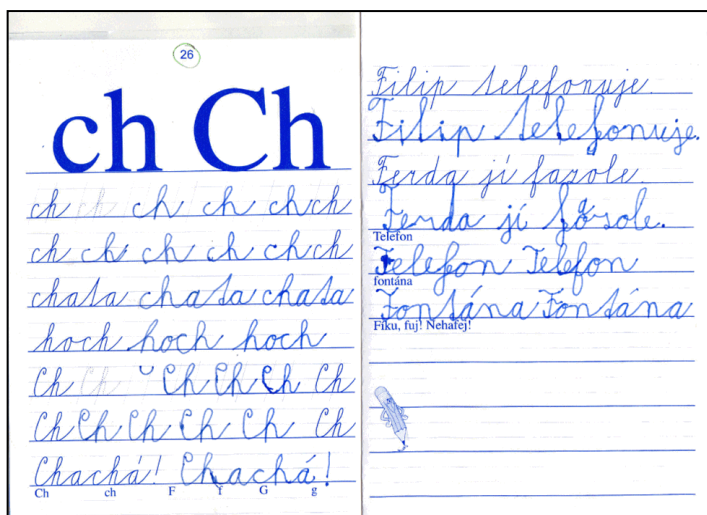 26
ch Ch
ch ch ch ch ch ch
ch ch ch ch ch ch
chata chata chata
hoch hoch hoch
Ch Ch Ch Ch Ch Ch
Ch Ch Ch Ch Ch Ch
Chachá! Chachá!
Ch ch F f G g
Filip telefonuje.
Filip telefonuje.
Ferda jí fazole.
Ferda jí fazole.
Telefon
Telefon Telefon
fontána
Fontána Fontána
Fíku, fuj! Neňafej!